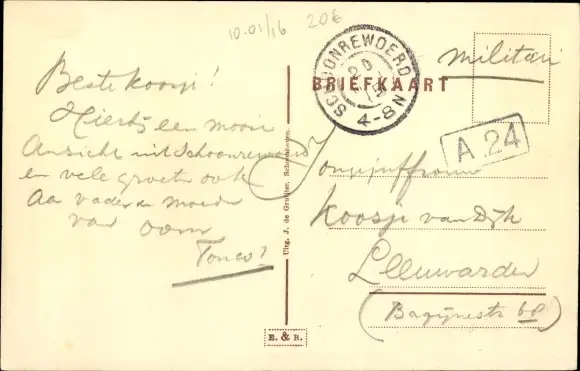 10.01/16 20€
Beste Koosje!
Hierbij een mooie
Ansicht uit Schoonrewoerd
en vele groeten ook
Aan vader en moeder
van oom
Tonco
SCHOONREWOERD
20
4-8N
militair
BRIEFKAART
A 24
Jongejuffrouw
Koosje van Dijk
Leeuwarden
(Bagijnestr 60)
Uitg. J. de Gruijter, Schoonhoven.
E. & B.